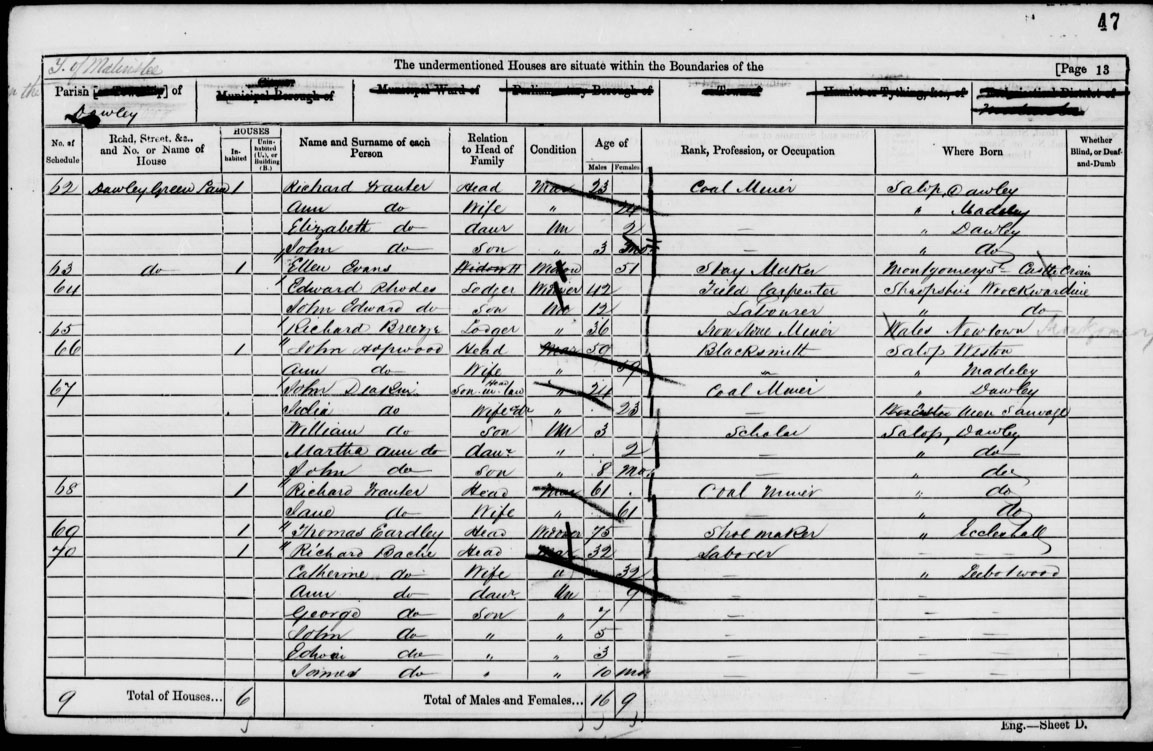 47
T. of Malinslee
The undermentioned Houses are situate within the Boundaries of the
[Page 13
in the
Parish [or Township] of
Municipal Borough of
Municipal Ward of
Parliamentary Borough of
Town of
Hamlet or Tything, &c., of
Ecclesiastical District of
Dawley
No. of Schedule
Road, Street, &c., and No. or Name of House
HOUSES
In-habited
Unin-habited (U.), or Building (B.)
Name and Surname of each Person
Relation to Head of Family
Condition
Age of
Males
Females
Rank, Profession, or Occupation
Where Born
Whether Blind, or Deaf-and-Dumb
62 Dawley Green Lane 1 Richard Tranter Head Mar 23 Coal Miner Salop, Dawley
Ann do Wife " 24 " Madeley
Elizabeth do daur Un 2 — " Dawley
John do Son " 3 Mos — " do
63 do 1 Ellen Evans Widow H Widow 51 Stay Maker Montgomerys Castle Crein
64 Edward Rhodes Lodger Widower 42 Field Carpenter Shropshire Wockwardine
John Edward do Son Un 12 Labourer " do
65 Richard Breeze Lodger " 36 Iron Stone Miner Wales Newtown
66 1 John Hopwood Head Mar 59 Blacksmith Salop Weston
Ann do Wife " 59 " Madeley
67 John Deakin Son-in-law Head " 24 Coal Miner " Dawley
do Wife do 23 — Worcester
William do Son Un 3 Scholar Salop, Dawley
Martha Ann do daur " 2 — " do
John do Son " 8 Mos — " do
68 1 Richard Tranter Head Mar 61 Coal Miner " do
Jane do Wife " 61 " do
69 1 Thomas Eardley Head Widower 75 Shoe maker " Eccleshall
70 1 Richard Bache Head Mar 32 Laborer — —
Catherine do Wife " 32 — " Leebotwood
Ann do daur Un 9 — —
George do Son " 7 — —
John do " " 5 — —
Edwin do " " 3 — —
James do " " 10 Mos — —
9 Total of Houses... 6 Total of Males and Females... 16 9
Eng.—Sheet D.